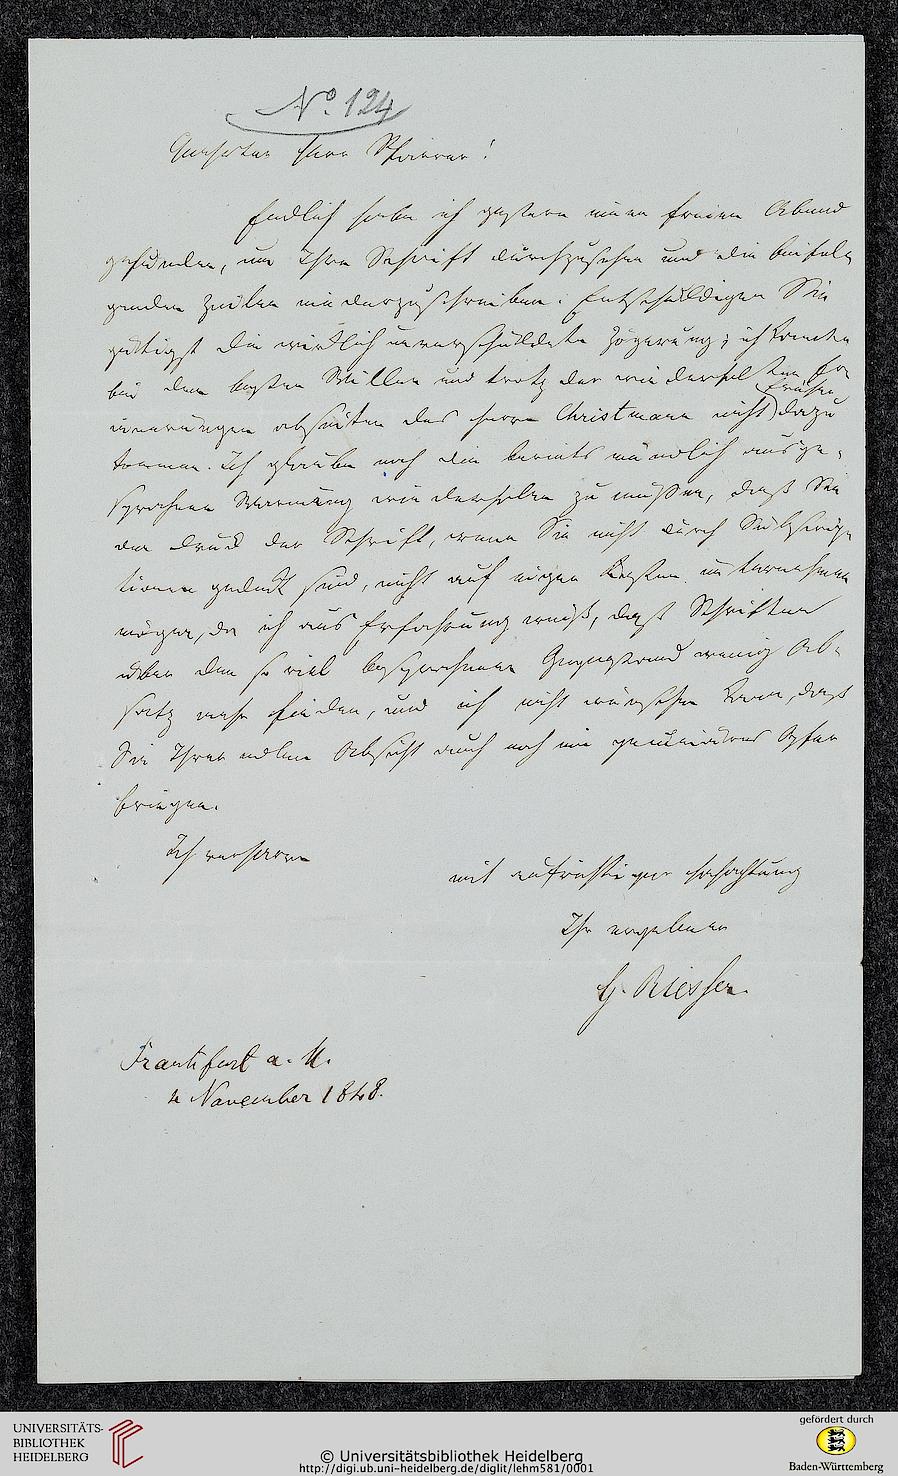 No. 124
Geehrter Herr Pfarrer!
Endlich habe ich gestern einen freien Abend
gefunden, um Ihre Schrift durchzusehen und die beifol-
genden Zeilen niederzuschreiben. Entschuldigen Sie
gütigst die wirklich unverschuldete Zögerung; ich konnte
bei dem besten Willen und trotz der wiederholten Er-
früher
innerungen abseiten des Herrn Christmann nicht dazu
kommen. Ich glaube noch die bereits mündlich ausge-
sprochene Warnung wiederholen zu müssen, daß Sie
den Druck der Schrift, wenn Sie nicht durch Subskrip-
tionen gedeckt sind, nicht auf eigne Kosten unternehmen
mögen, da ich aus Erfahrung weiß, daß Schriften
über den so viel besprochenen Gegenstand wenig Ab-
satz mehr finden, und ich nicht wünschen kann, daß
Sie Ihrer edlen Absicht auch noch ein pecuniäres Opfer
bringen.
Ich verharre
mit aufrichtiger Hochachtung
Ihr ergebener
G. Riesser.
Frankfurt a. M.
4 November 1848.
UNIVERSITÄTS-
BIBLIOTHEK
HEIDELBERG
© Universitätsbibliothek Heidelberg
http://digi.ub.uni-heidelberg.de/diglit/lehm581/0001
gefördert durch
Baden-Württemberg